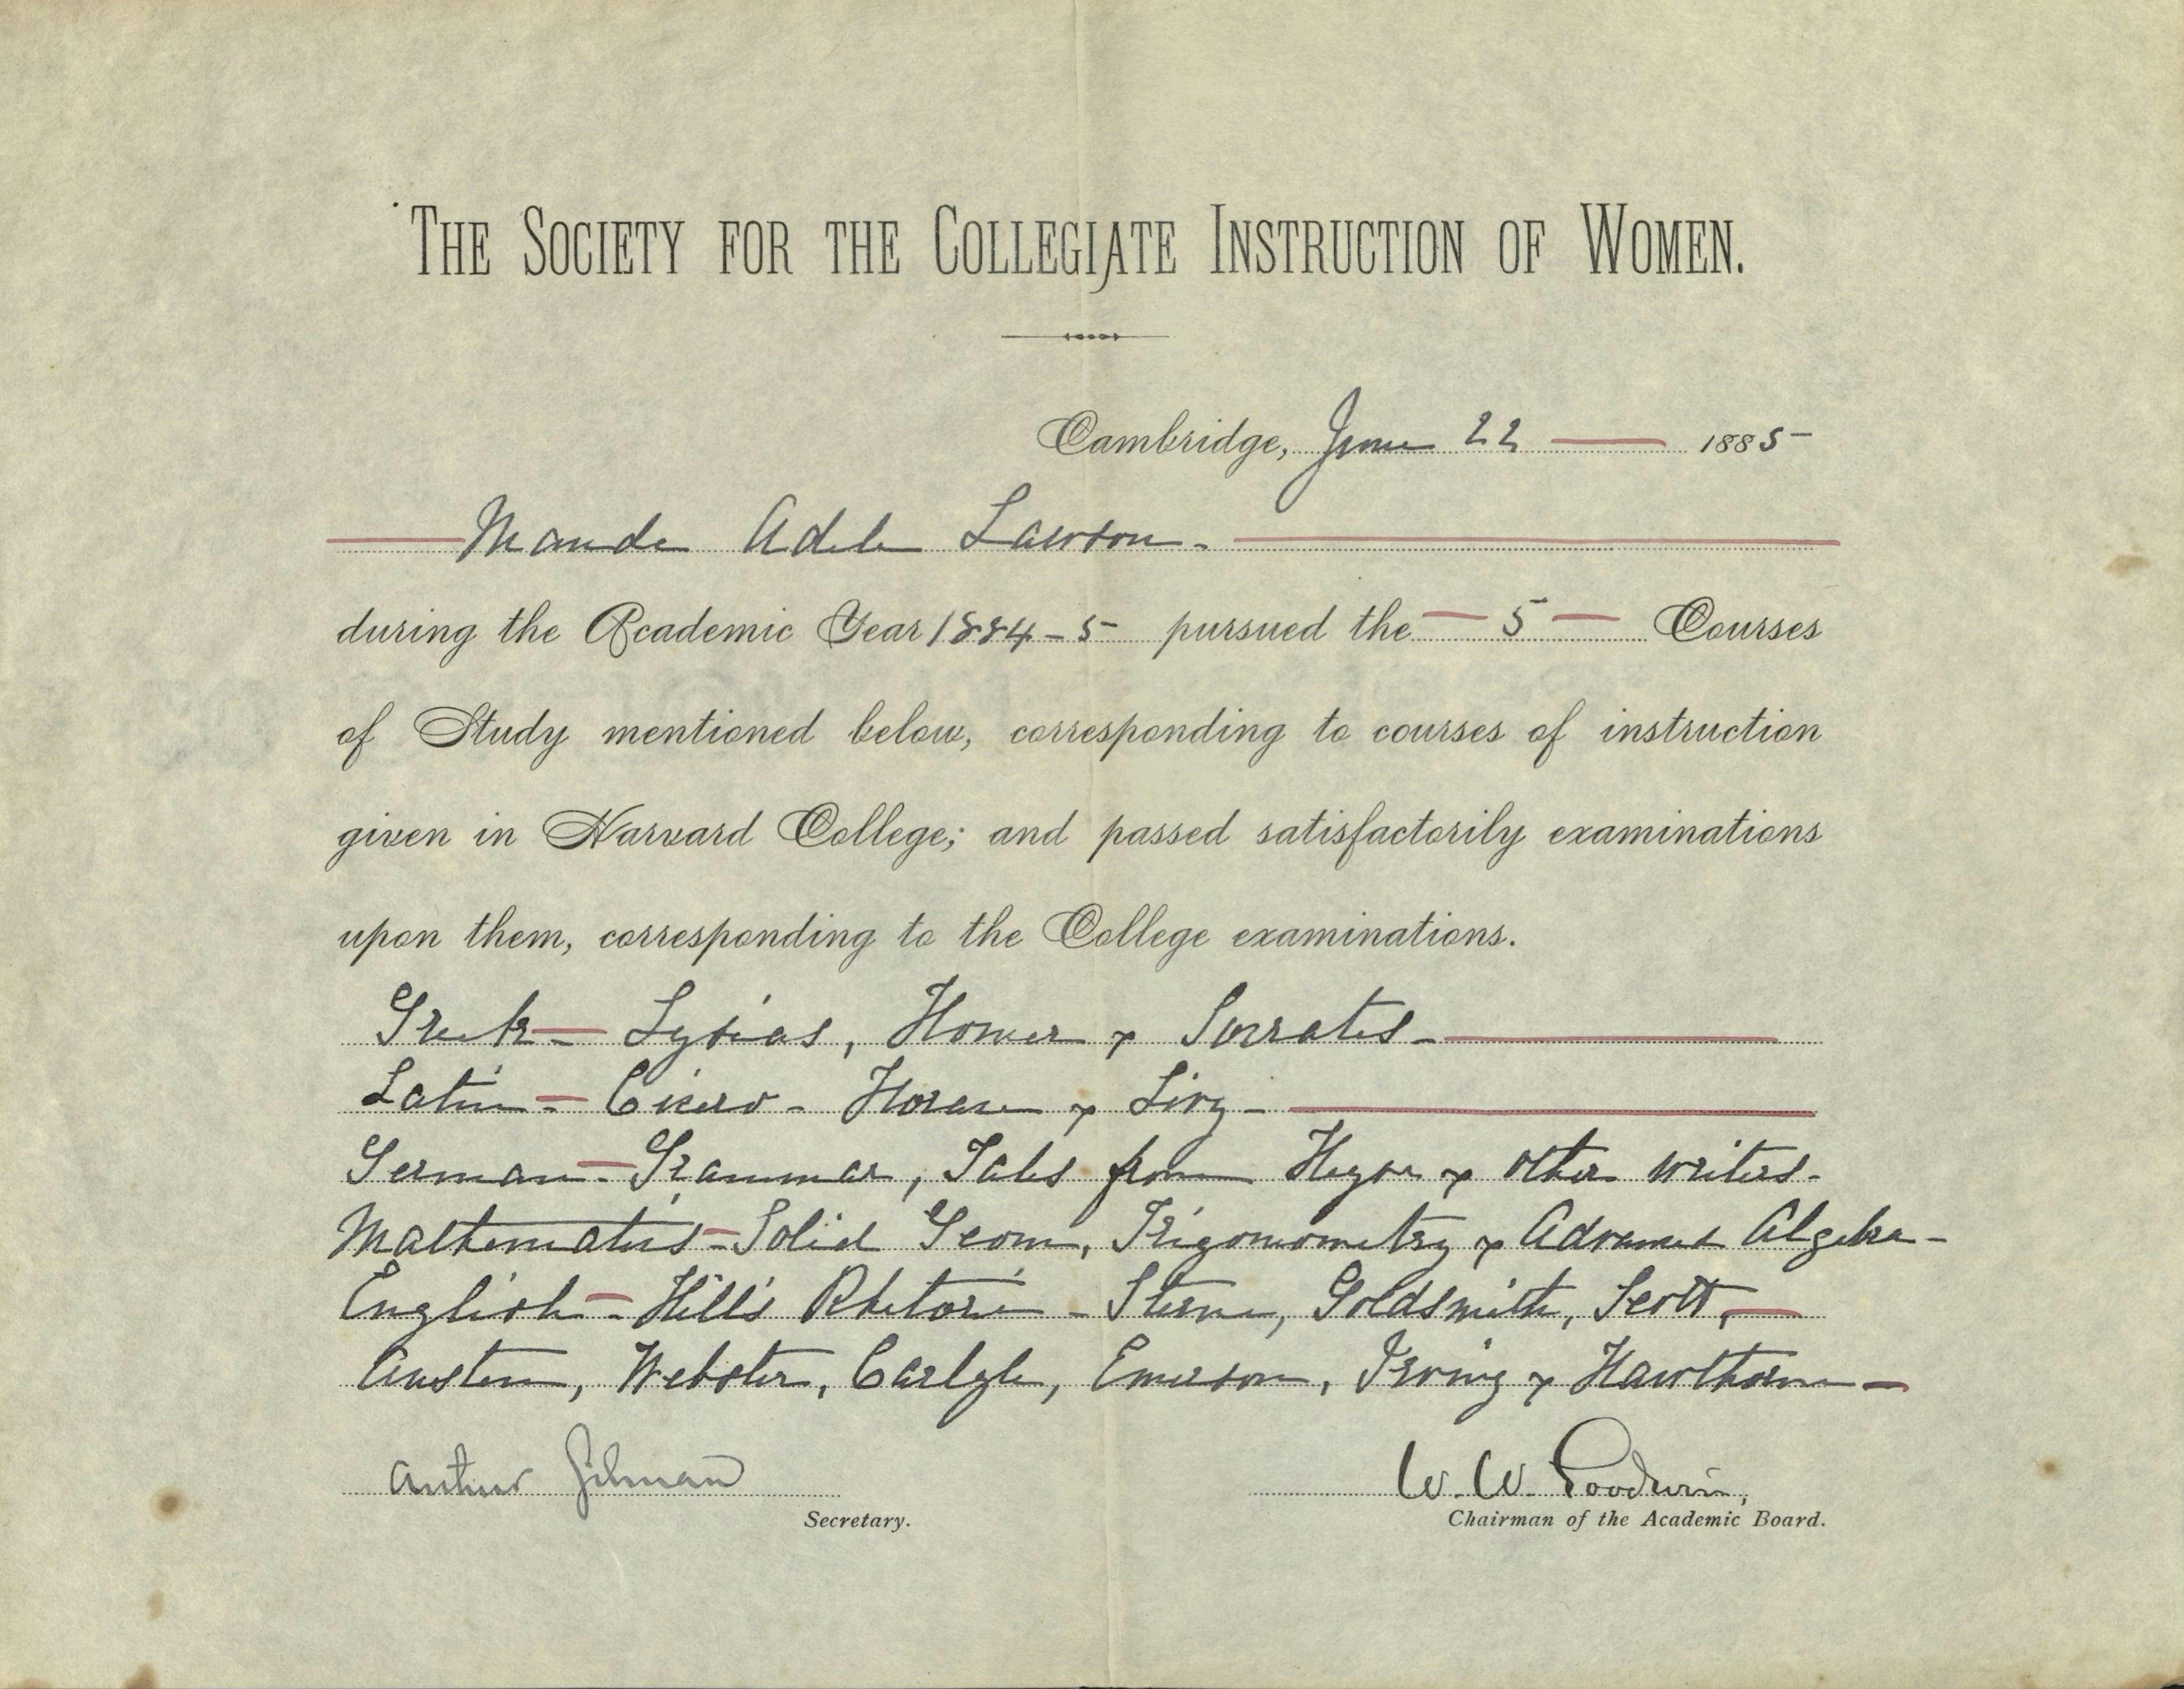 THE SOCIETY FOR THE COLLEGIATE INSTRUCTION OF WOMEN.
Cambridge, June 22 — 1885
— Maude Adele Lawson. —
during the Academic Year 1884-5 pursued the — 5 — Courses
of Study mentioned below, corresponding to courses of instruction
given in Harvard College; and passed satisfactorily examinations
upon them, corresponding to the College examinations.
Greek — Lysias, Homer & Socrates —
Latin — Cicero - Horace & Livy —
German — Grammar, Tales from Heyse & other writers.
Mathematics — Solid Geom, Trigonometry & Advanced Algebra -
English — Hill's Rhetoric - Sterne, Goldsmith, Scott, —
Austen, Webster, Carlyle, Emerson, Irving & Hawthorne —
Arthur Gilman W. W. Goodwin,
Secretary. Chairman of the Academic Board.